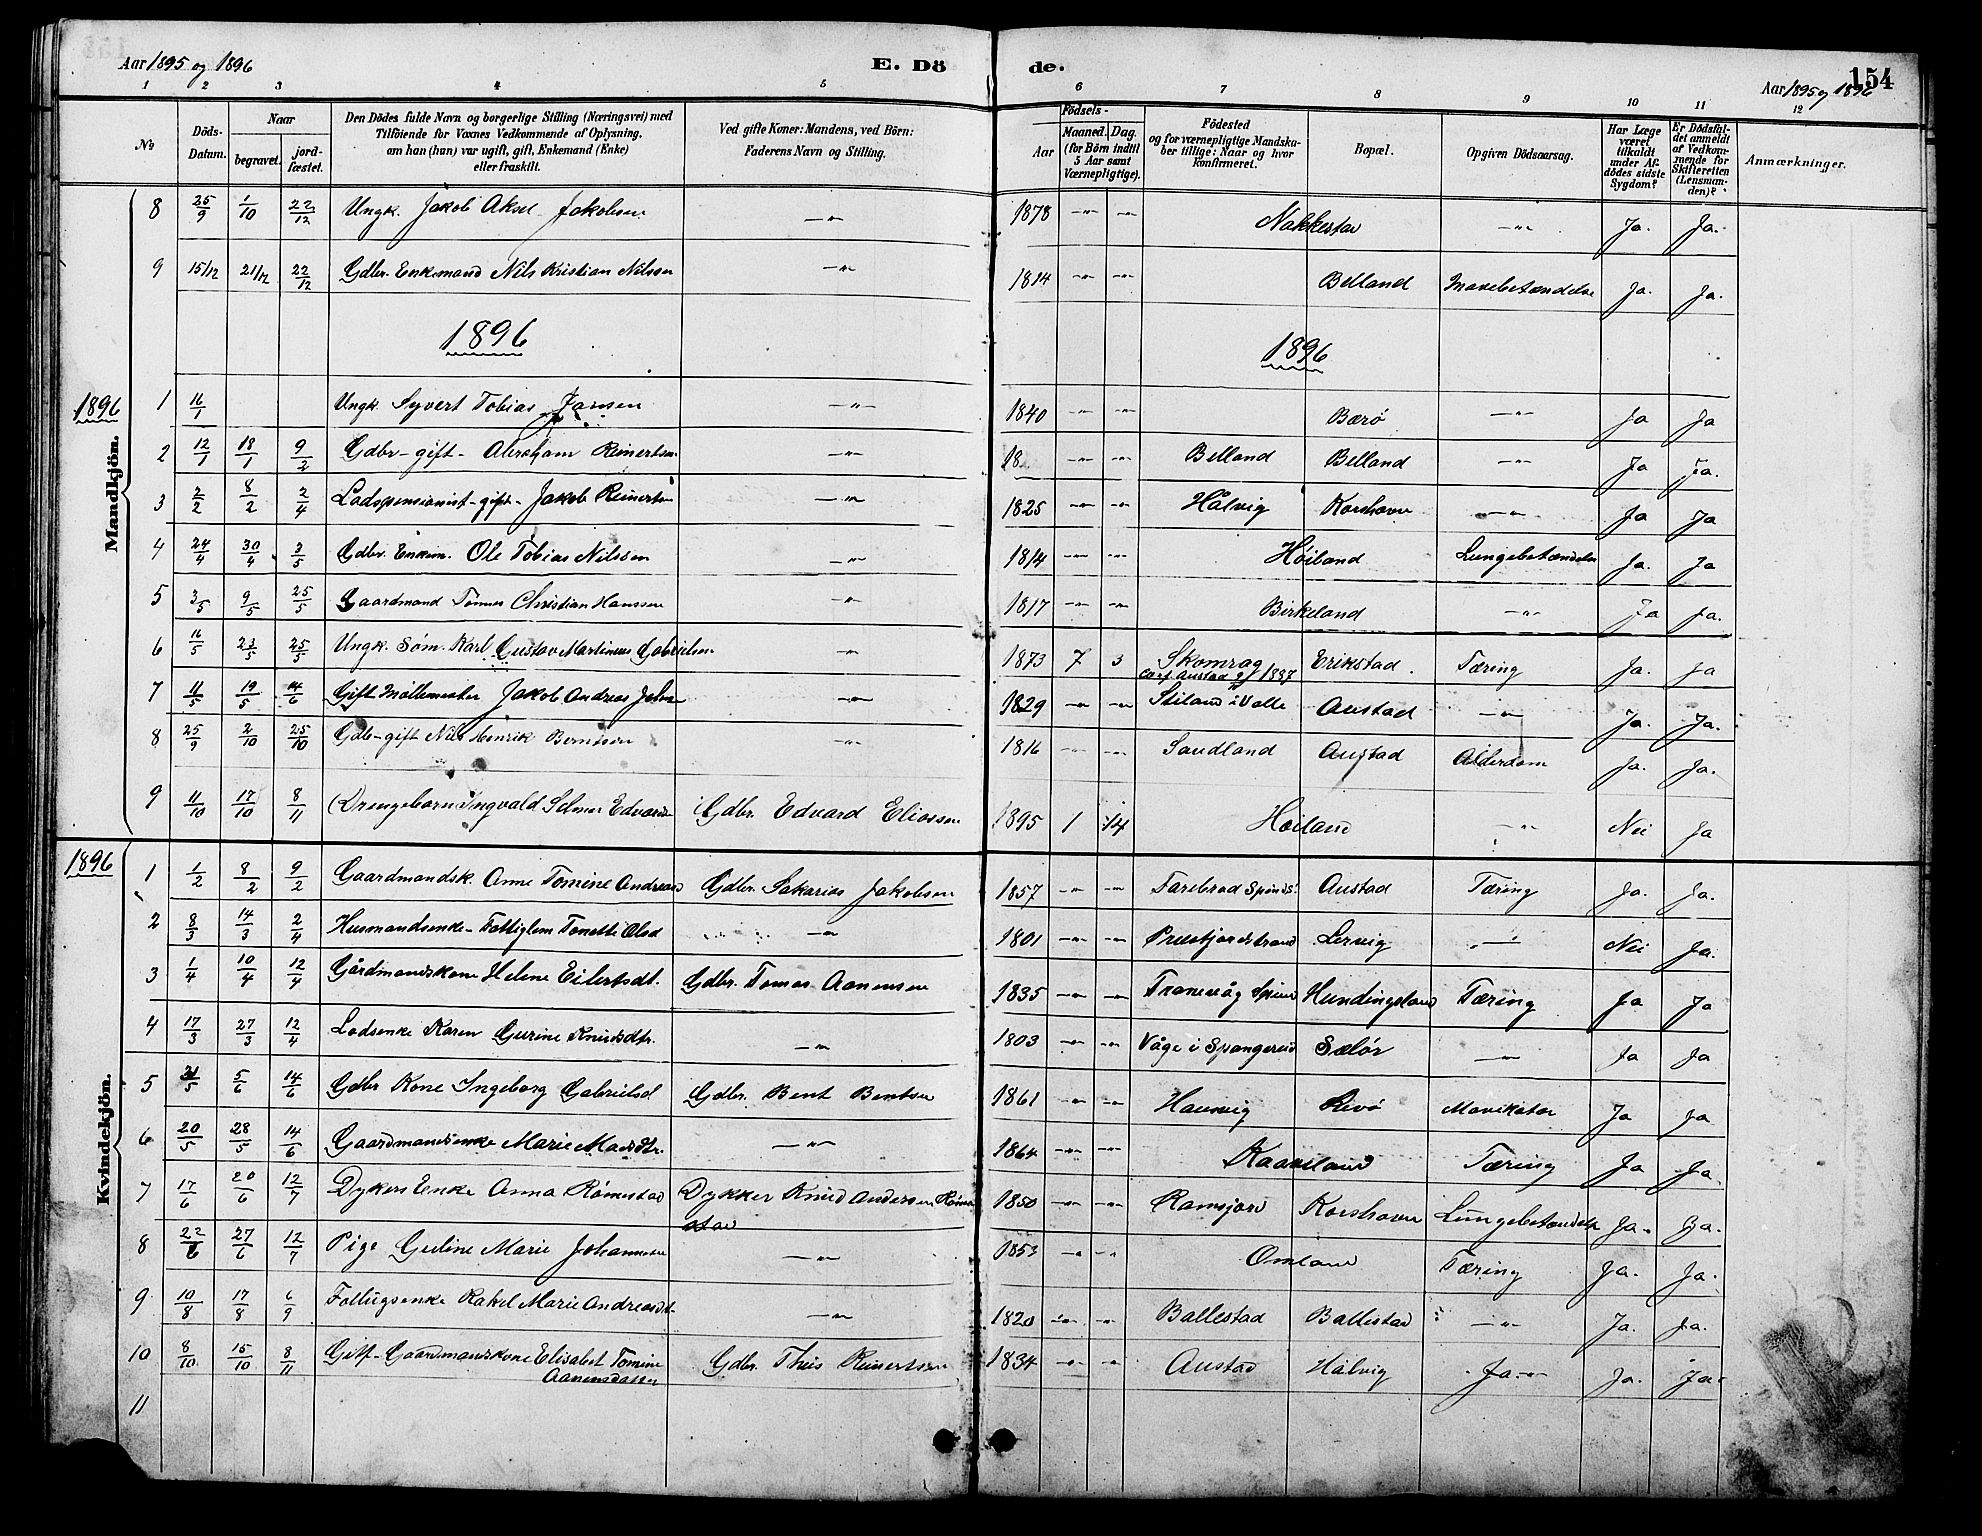 Aar 1895 og 1896
E. Dö de.
154
Aar 1895 og 1896
1 2 3 4 5 6 7 8 9 10 11 12
No
Döds-Datum.
Naar
begravet.
jord-fæstet.
Den Dödes fulde Navn og borgerlige Stilling (Næringsvei) med
Tilföiende for Voxnes Vedkommende af Oplysning,
om han (hun) var ugift, gift, Enkemand (Enke)
eller fraskilt.
Ved gifte Koner: Mandens, ved Börn:
Faderens Navn og Stilling.
Födsels-
Aar
Maaned. Dag.
(for Börn indtil
5 Aar samt
Værnepligtige).
Födested
og for værnepligtige Mandska-
ber tillige: Naar og hvor
konfirmeret.
Bopæl.
Opgiven Dödsaarsag.
Har Læge
været
tilkaldt
under Af-
dödes sidste
Sygdom?
Er Dödsfal-
det anmeldt
af Vedkom-
mende for
Skifteretten
(Lensman-
den)?
Anmærkninger.
8 25/9 1/10 22/12 Ungk. Jakob Aksel Jakobsen -"- 1878 -"- -"- Nakkestad -"- Ja. Ja.
9 15/12 21/12 22/12 Gdbr. Enkemand Nils Kristian Nilsen -"- 1814 -"- -"- Belland Mavebetændelse Ja. Ja.
1896 1896
1896
Mandkjön.
1 16/1 Ungk. Syvert Tobias Jansen -"- 1840 -"- -"- Bærø -"- Ja Ja
2 12/1 18/1 9/2 Gdbr-gift- Abraham Reinertsen -"- 18 -"- -"- Belland Belland -"- Ja Ja.
3 2/2 8/2 2/4 Lodspensionist-gift- Jakob Reinertsen -"- 1825 -"- -"- Hålvig Korshavn -"- Ja Ja
4 24/4 30/4 3/5 Gdbr. Enkem. Ole Tobias Nilsen -"- 1814 -"- -"- Høiland Lungebetændelse Ja. Ja
5 3/5 9/5 25/5 Gaardmand Tønnes Christian Hansen -"- 1817 -"- -"- Birkeland -"- Ja Ja.
6 16/5 23/5 25/5 Ungk. Søm. Karl Gustav Martinius Gabrielsen -"- 1873 7 3 Skomrag Erikstad. Tæring Ja. Ja
7 11/5 19/5 14/6 Gift Møllemester Jakob Andreas -"- 1829 -"- -"- Stiland i Valle Austad -"- Ja. Ja.
8 25/9 2/10 25/10 Gdb-gift Nils Henrik Berntsen -"- 1816 -"- -"- Sandland Austad Alderdom Ja. Ja.
9 11/10 17/10 8/11 Drengebarn Ingvald Selmer Edvards Gdbr. Edvard Eliassen 1895 1 14 Høiland -"- Nei Ja
1896
Kvindekjön.
1 1/2 8/2 9/2 Gaardmandsk. Anne Tomine Andreasd Gdbr. Sakarias Jakobsen 1857 -"- -"- Farebrod Spinds. Austad Tæring Ja. Ja.
2 8/3 14/3 2/4 Husmandsenke- Fattiglem Tonette Olsd -"- 1801 -"- -"- Lervig -"- Nei Ja.
3 1/4 10/4 12/4 Gårdmandskone Helene Eilertsdt. Gdbr. Tomas Aanensen 1835 -"- -"- Tranevåg Spind Hundingsland Tæring Ja Ja
4 17/3 27/3 12/4 Lodsenke Karen Gurine Knudsdtr. -"- 1803 -"- -"- Våge i Spangereid Sælør -"- Ja Ja
5 5/6 14/6 Gdbr Kone Ingeborg Gabrielsd Gdbr. Bent Bentsen 1861 -"- -"- Hausvig Revø Mavekatar Ja Ja
6 20/5 28/5 14/6 Gaardmandsenke Marie Madsdtr. -"- 1864 -"- -"- Kaaveland Tæring Ja Ja.
7 17/6 20/6 12/7 Dykers Enke Anna Rømestad Dykker Knud Andersen Røme
stad 1850 -"- -"- Ramsjord Korshavn Lungebetændelse Ja. Ja.
8 22/6 27/6 12/7 Pige Guline Marie Johannesen -"- 1853 -"- -"- Omland Tæring Ja. Ja.
9 10/8 17/8 6/9 Rakel Marie Andreasdt. -"- 1820 -"- -"- Ballestad Ballestad -"- Ja. Ja.
10 8/10. 15/10 8/11 Gift- Gaardmandskone Elisabet Tomine
Aanensdatter Gdbr. This Reinertsen 1834 -"- -"- Austad Hålvig Ja. -"- Ja. Ja.
11